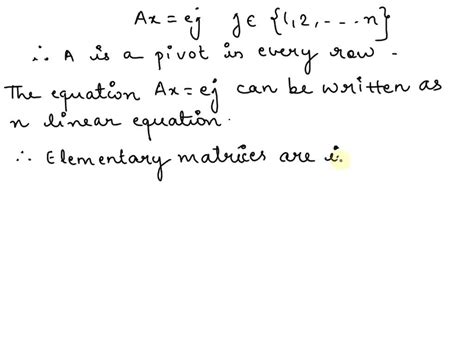 Ax = ej   j ∈ {1,2, - - - . n}
∴ A is a pivot in every row .
The equation Ax = ej can be written as
n linear equation .
∴ Elementary matrices are i